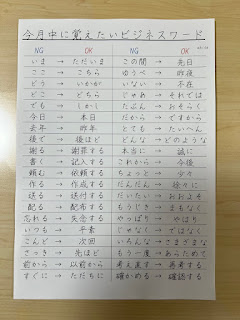 今月中に覚えたいビジネスワード
NG OK NG OK
いま → ただいま この間 → 先日
ここ → こちら ゆうべ → 昨夜
どう → いかが いない → 不在
どこ → どちら じゃあ → それでは
でも → しかし たぶん → おそらく
今日 → 本日 だから → ですから
去年 → 昨年 とても → たいへん
後で → 後ほど どんな → どのような
謝る → 謝罪する 本当に → 誠に
書く → 記入する これから → 今後
頼む → 依頼する ちょっと → 少々
作る → 作成する だんだん → 徐々に
送る → 送付する だいたい → おおよそ
配る → 配布する もうじき → まもなく
忘れる → 失念する やっぱり → やはり
いつも → 平素 じゃなく → ではなく
こんど → 次回 いろんな → さまざまな
さっき → 先ほど もう一度 → あらためて
前から → 以前から 考え直す → 再考する
すぐに → ただちに 確かめる → 確認する